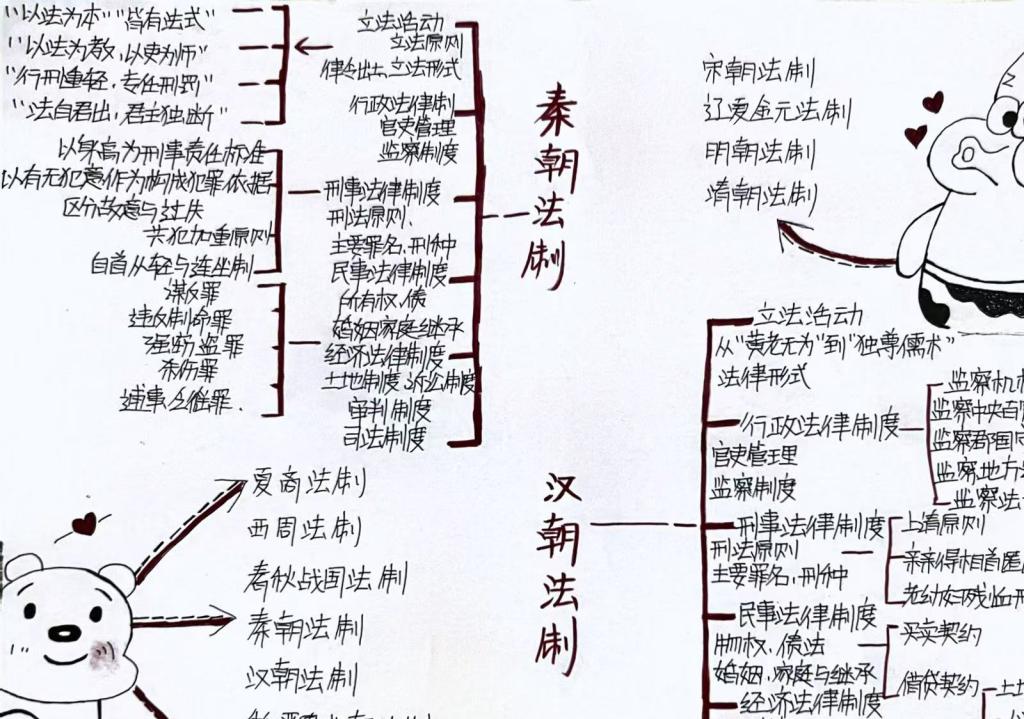 "以法为本" "皆有法式"
"以法为教，以吏为师"
"行刑重轻，专任刑罚"
"法自君出，君主独断"
立法活动
立法原则
律令出土，立法形式
行政法律制
官吏管理
监察制度
以身高为刑事责任标准
以有无犯意作为构成犯罪依据
区分故意与过失
共犯加重原则
自首从轻与连坐制
刑事法律制度
刑法原则.
主要罪名，刑种
民事法律制度
所有权，债
婚姻家庭继承
经济法律制度
土地制度，诉讼制度
审判制度
司法制度
谋反罪
盗罪
杀伤罪
秦朝法制
宋朝法制
辽夏金元法制
明朝法制
清朝法制
夏商法制
西周法制
春秋战国法制
秦朝法制
汉朝法制
汉朝法制
立法活动
从"黄老无为"到"独尊儒术"
法律形式
行政法律制度
官吏管理
监察制度
监察机
监察中央百
监察郡国
监察地方
监察法
刑事法律制度
刑法原则
主要罪名，刑种
上请原则
亲亲得相首匿
老幼妇残恤刑
民事法律制度
物权，债法
婚姻，家庭与继承
买卖契约
借贷契约
经济法律制度